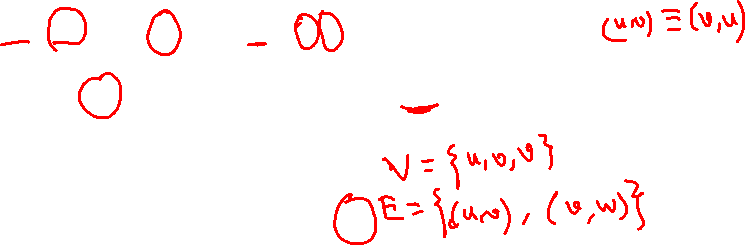 (u,v) ≡ (v,u)
V = {u, v, v}
E = {(u,v), (v,w)}